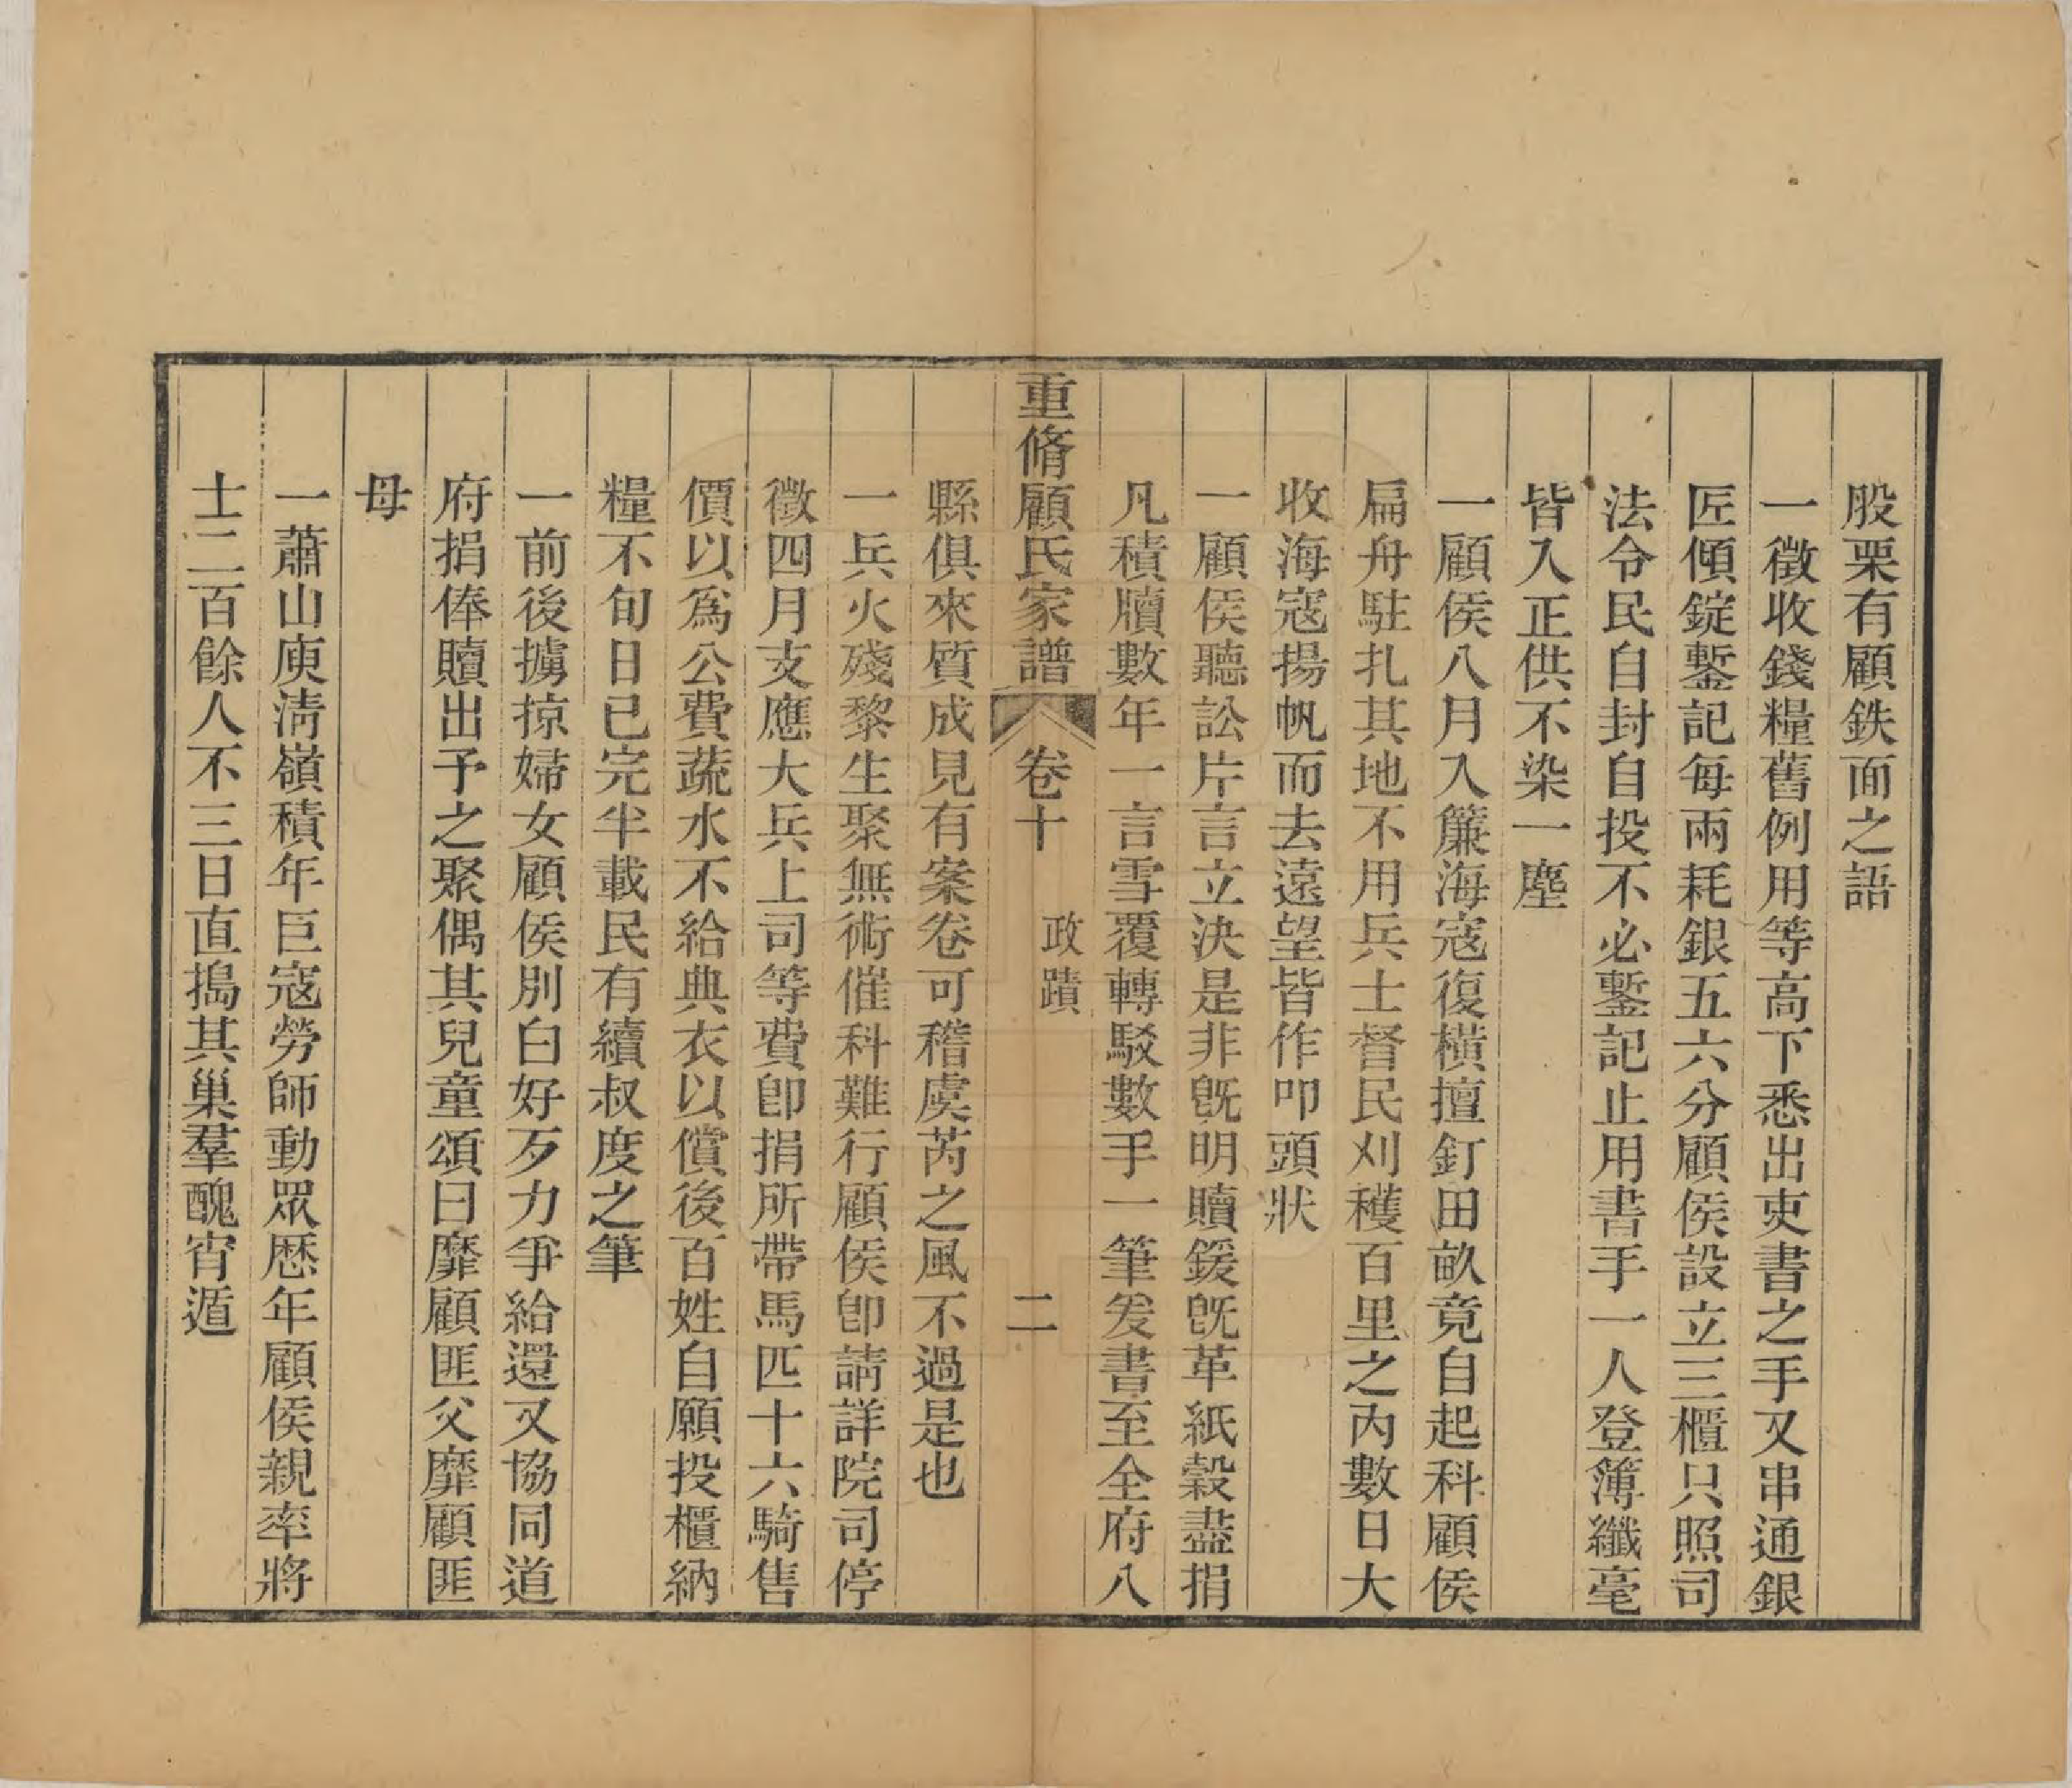 股栗有顧鉄面之語
一徵收錢糧舊例用等高下悉出吏書之手又串通銀
匠傾錠鏨記每兩耗銀五六分顧侯設立三櫃只照司
法令民自封自投不必鏨記止用書手一人登簿纖毫
皆入正供不染一塵
一顧侯八月入簾海寇復橫擅釘田畝竟自起科顧侯
扁舟駐扎其地不用兵士督民刈穫百里之內數日大
收海寇揚帆而去遠望皆作叩頭狀
一顧侯聽訟片言立決是非旣明贖鍰旣革紙穀盡捐
凡積牘數年一言雪覆轉駁數手一筆爰書至全府八
重脩顧氏家譜 卷十 政蹟 二
縣俱來質成見有案卷可稽虞芮之風不過是也
一兵火殘黎生聚無術催科難行顧侯卽請詳院司停
徵四月支應大兵上司等費卽捐所帶馬匹十六騎售
價以爲公費蔬水不給典衣以償後百姓自願投櫃納
糧不旬日已完半載民有續叔度之筆
一前後擄掠婦女顧侯別白好歹力爭給還又協同道
府捐俸贖出予之聚偶其兒童頌曰靡顧匪父靡顧匪
母
一蕭山庾淸嶺積年巨寇勞師動眾歷年顧侯親率將
士二百餘人不三日直搗其巢羣醜宵遁